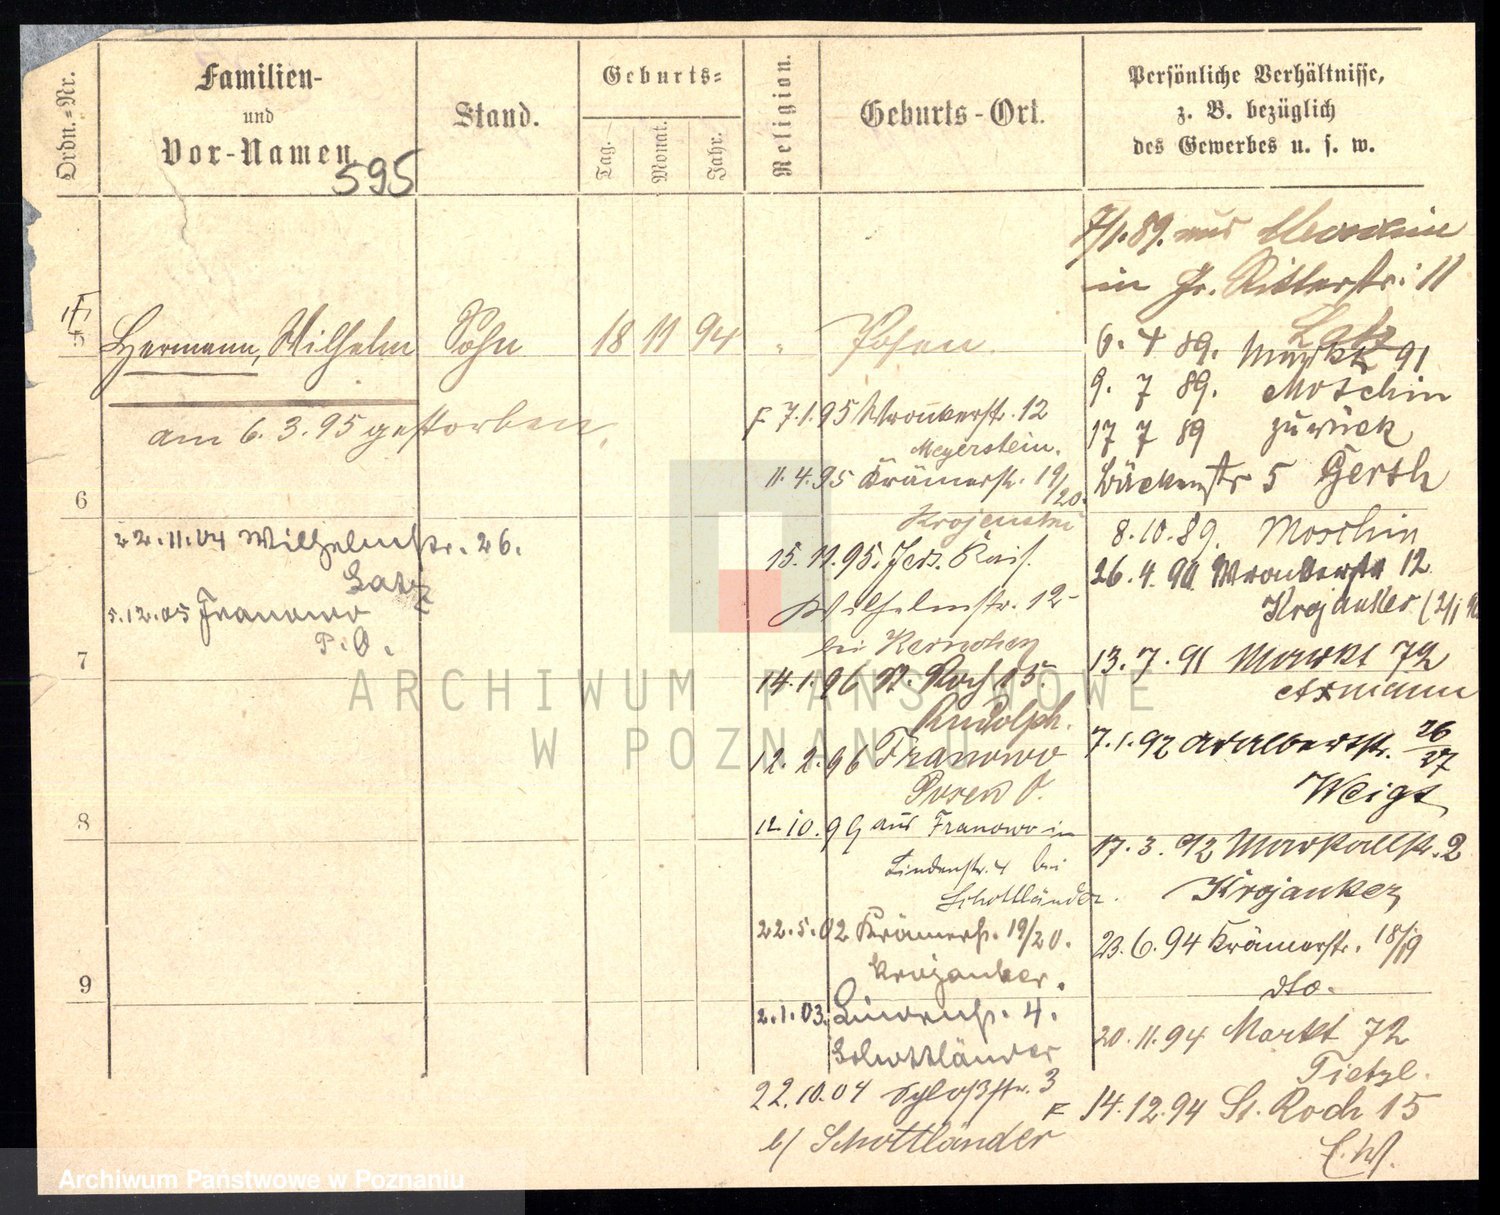 Ordn.=Nr.
Familien-
und
Vor-Namen.
Stand.
Geburts=
Tag.
Monat.
Jahr.
Religion.
Geburts-Ort.
Persönliche Verhältnisse,
z. B. bezüglich
des Gewerbes u. s. w.
595
5
Hermann, Wilhelm Sohn 18 11 94 " Posen.
am 6.3.95 gestorben.
6
22.11.04 Wilhelmstr. 26.
Latz
5.12.05 Franowo
P.O.
7
8
9
7.1.95 Wronkerstr. 12
Meyerstein.
11.4.95 Krämerstr. 19/20.
15.11.95. Jers. Kais.
Wilhelmstr. 12
bei
14.1.96 St. Roch 15.
Rudolph.
12.2.96 Franowo
Posen O.
12.10.99 aus Franowo in
Lindenstr. 4 bei
Schottländer.
22.5.02 Krämerstr. 19/20.
Krojanker.
2.1.03. Lindenstr. 4.
Schottländer
22.10.04 Schloßstr. 3
b/ Schottländer
7/1.89. aus Moschin
in Gr. Ritterstr. 11
Latz
6. 4 89. Markt 91
9. 7 89. Moschin
17 7 89 zurück
Bäckerstr 5 Gerth
8.10.89. Moschin
26.4.90 Wronkerstr 12
Krojanker
13.7.91 Markt 72
Axmann
7.1.92 Adalbertstr. 26/27
Weigt
17.3.92 Marstallstr. 2
Krojanker
23.6.94 Krämerstr. 18/19
dto.
20.11.94 Markt 72
14.12.94 St. Roch 15
ARCHIWUM PAŃSTWOWE
W POZNANIU
Archiwum Państwowe w Poznaniu